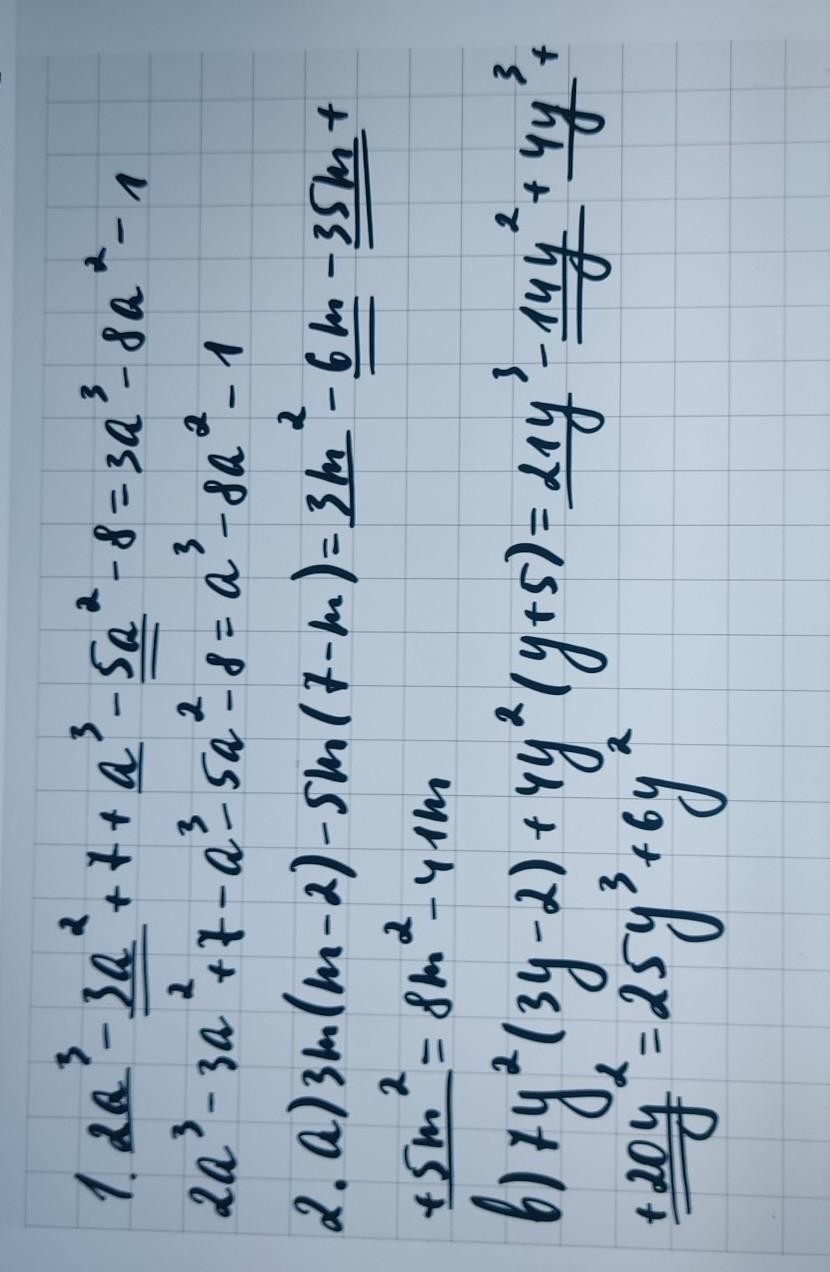 1. 2a³ - 3a² + 7 + a³ - 5a² - 8 = 3a³ - 8a² - 1
2a³ - 3a² + 7 - a³ - 5a² - 8 = a³ - 8a² - 1
2. a) 3m(m - 2) - 5m(7 - m) = 3m² - 6m - 35m +
+ 5m² = 8m² - 41m
b) 7y²(3y - 2) + 4y²(y + 5) = 21y³ - 14y² + 4y³ +
+ 20y² = 25y³ + 6y²